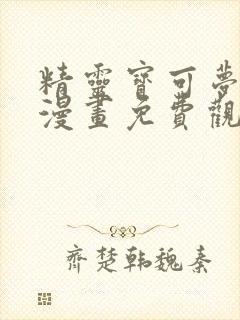 精靈寶可夢
漫畫免費觀
齊楚韓魏秦